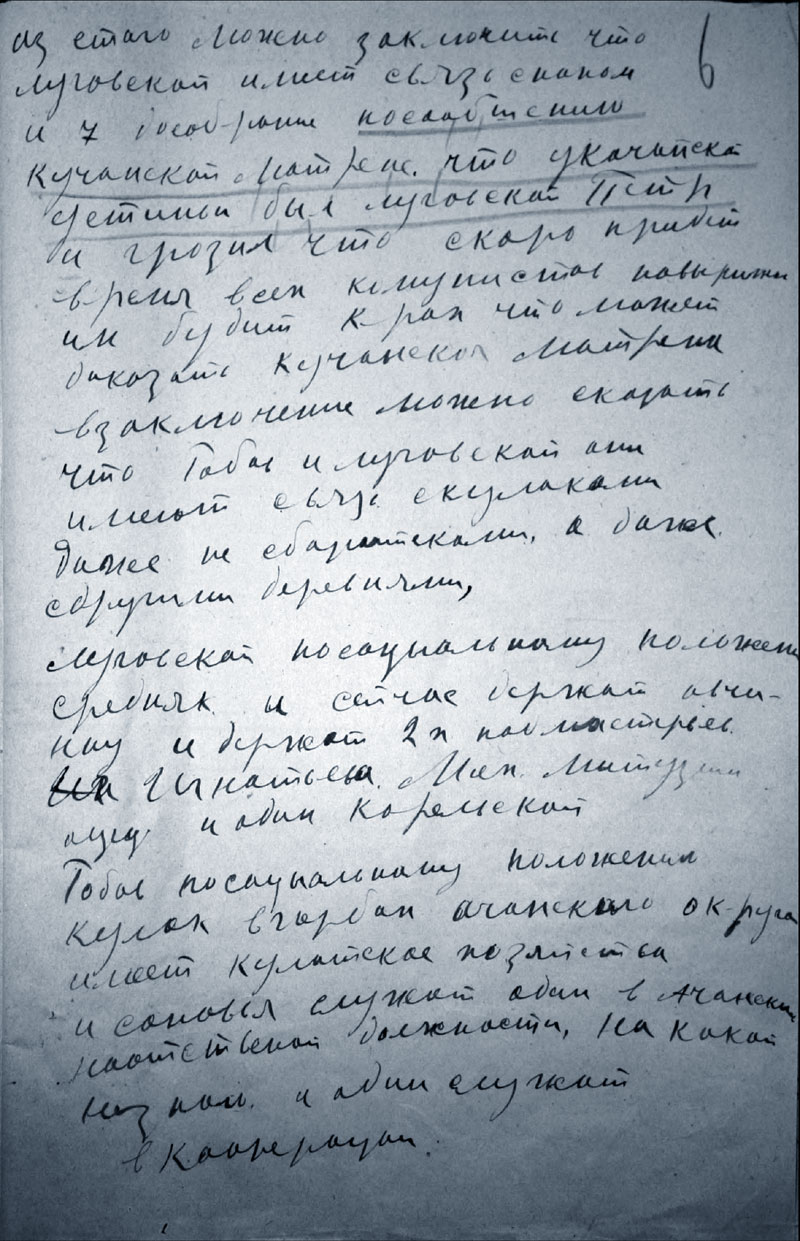 из етаго можно заключить что
6
луговской имеет связь спапом
и 7
Кучанской Матрене. что укачанска
детины был луговской Петр
и грозил что скоро прибет
время всех комунистов повырежи
им будит крах что может
доказать Кучанской Матрена
взаключение можно сказать
что Табас и луговской они
имеют связь скулаками
даже не сбаратсками, а даже
сдругими деревнями,
луговской посоциальному положени
средняк и сейчас держат овчи-
ну и держат 2х подмастрьев
Игнатьева. Мих.
и один Карельской
Табас посоциальному положению
кулак ачанского округа
имеет кулатское хозяйства
и сановья служат один в Ачански
наатственой должности, На какой
низнаю. и один служат
в Кааперации.